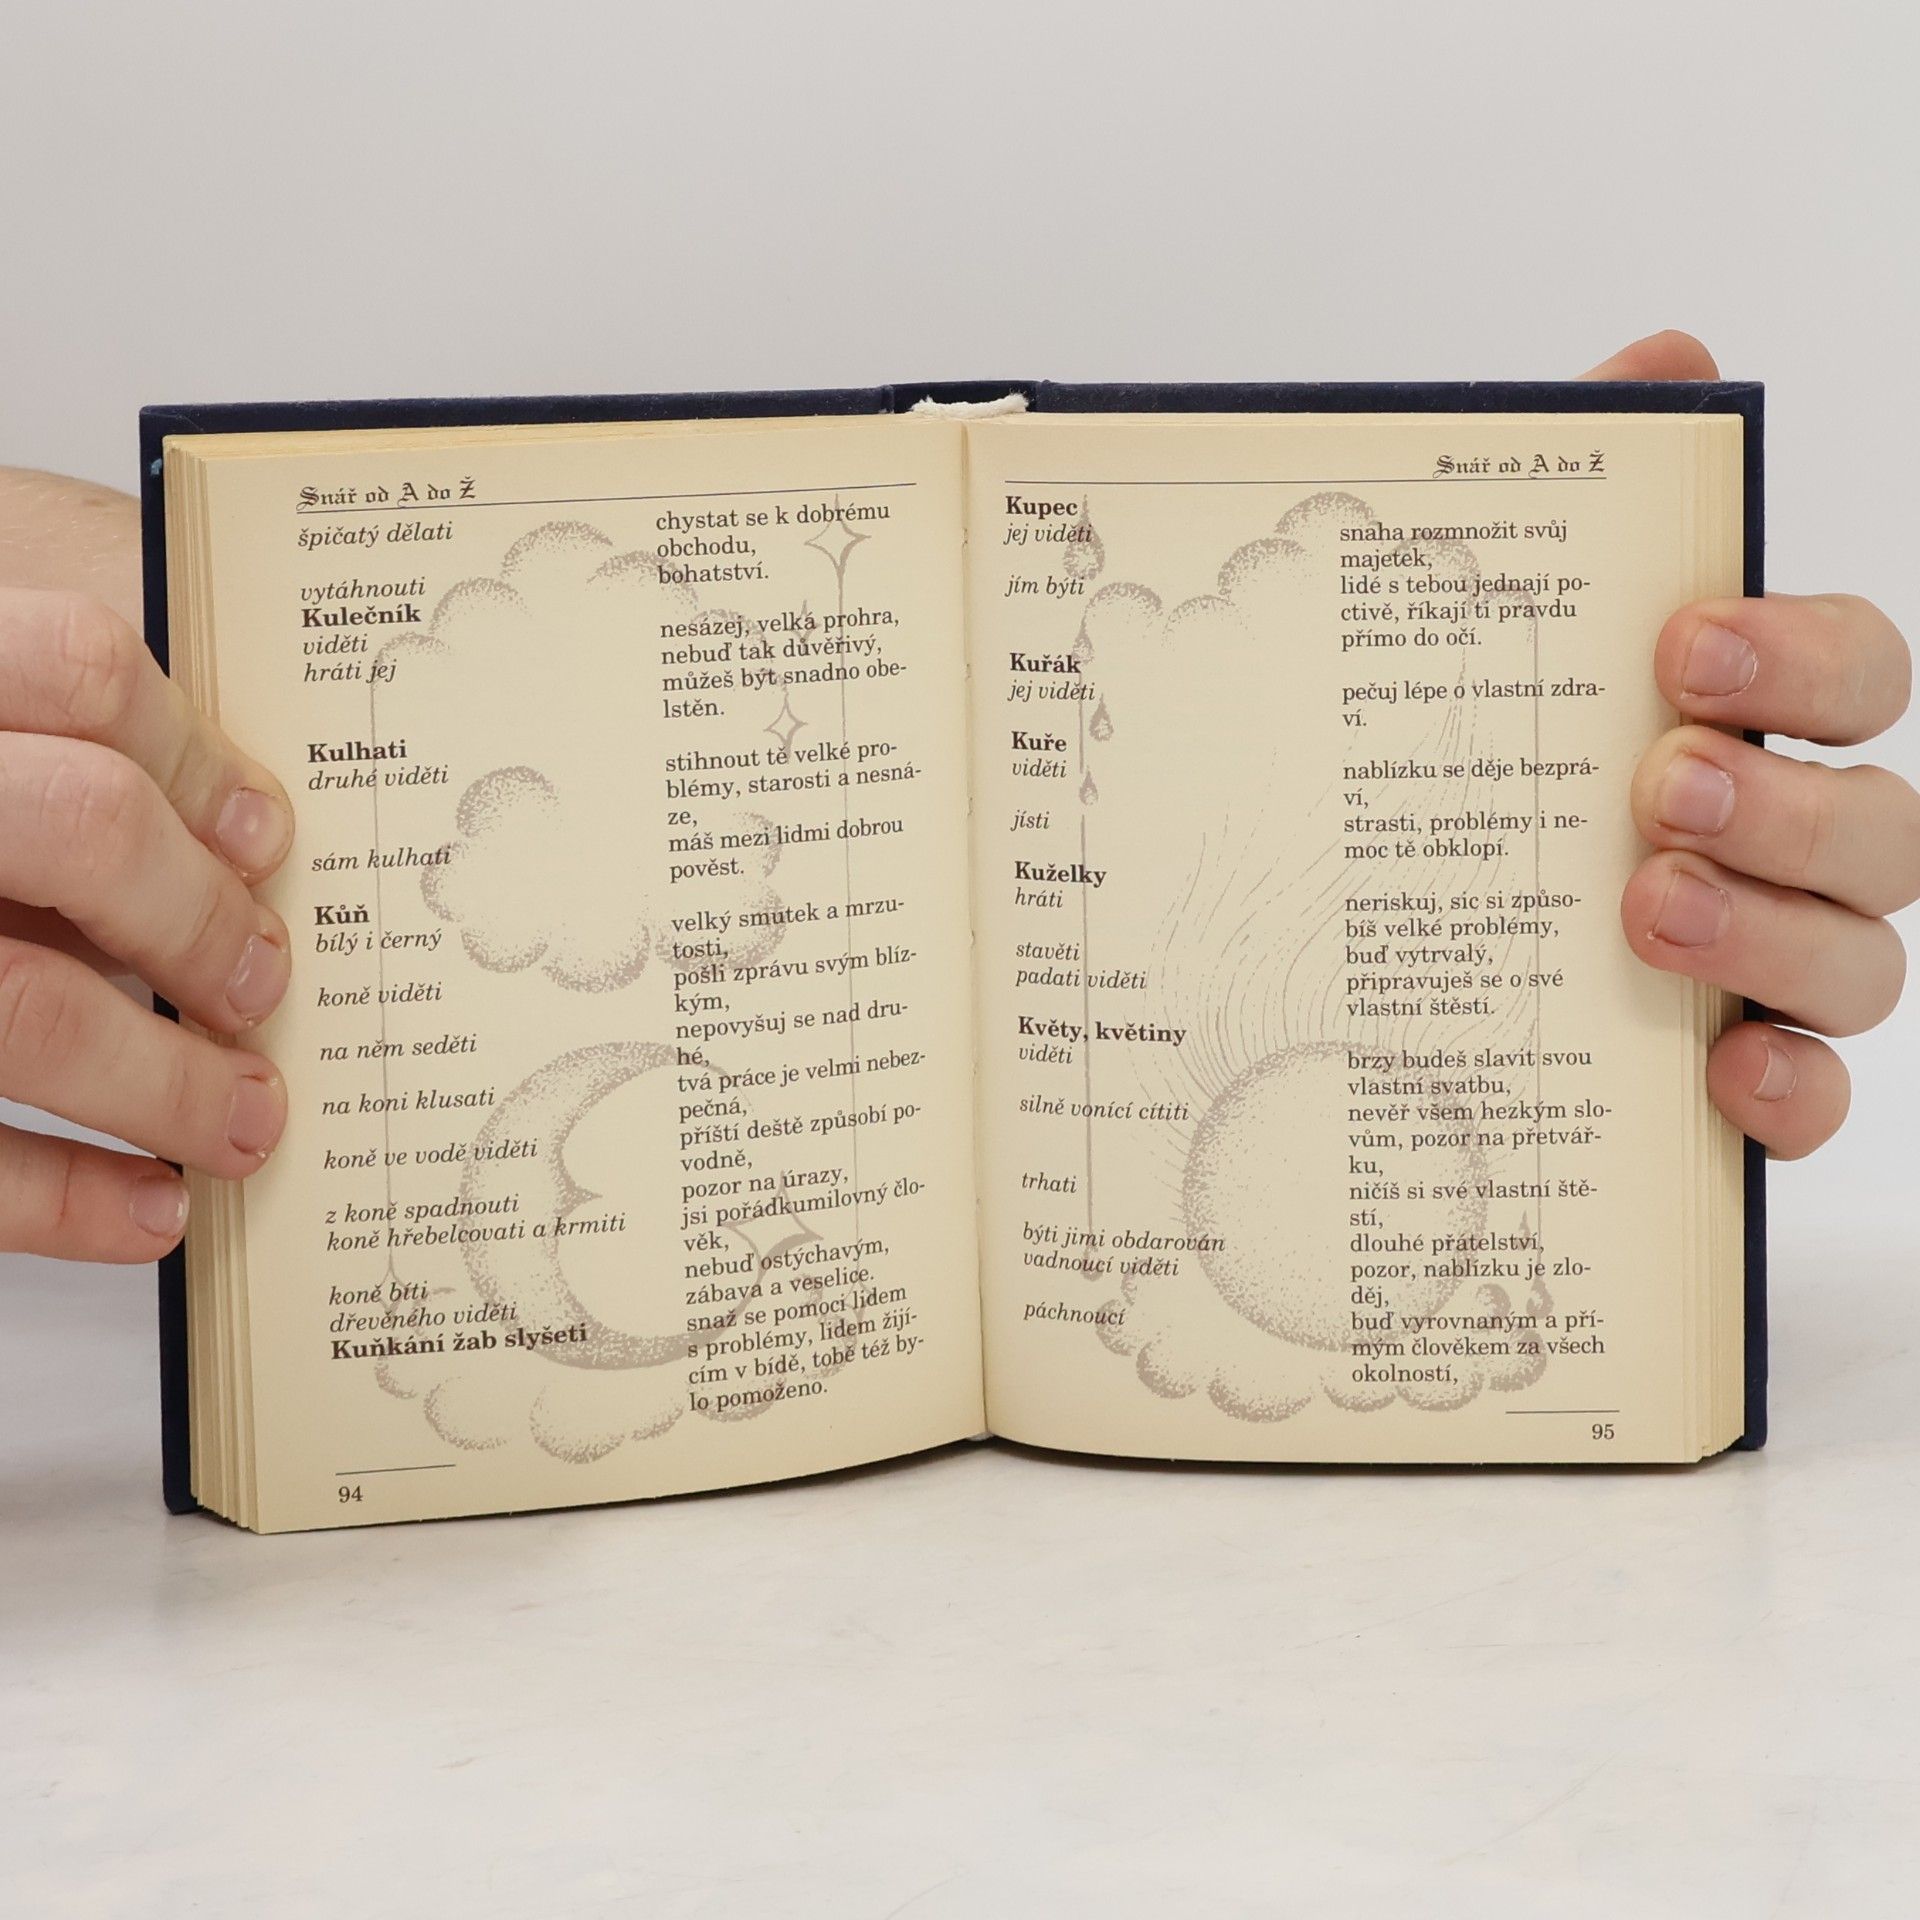 Snář od A do Ž
špičatý dělati
chystat se k dobrému
obchodu,
vytáhnouti
bohatství.
Kulečník
viděti
nesázej, velká prohra,
hráti jej
nebuď tak důvěřivý,
můžeš být snadno obe-
lstěn.
Kulhati
druhé viděti
stihnout tě velké pro-
blémy, starosti a nesná-
ze,
sám kulhati
máš mezi lidmi dobrou
pověst.
Kůň
bílý i černý
velký smutek a mrzu-
tosti,
koně viděti
pošli zprávu svým blíz-
kým,
na něm seděti
nepovyšuj se nad dru-
hé,
na koni klusati
tvá práce je velmi nebez-
pečná,
koně ve vodě viděti
příští deště způsobí po-
vodně,
z koně spadnouti
pozor na úrazy,
koně hřebelcovati a krmiti
jsi pořádkumilovný člo-
věk,
koně bíti
nebuď ostýchavým,
dřevěného viděti
zábava a veselice.
Kuňkání žab slyšeti
snaž se pomoci lidem
s problémy, lidem žijí-
cím v bídě, tobě též by-
lo pomoženo.
94
Snář od A do Ž
Kupec
jej viděti
snaha rozmnožit svůj
majetek,
jím býti
lidé s tebou jednají po-
ctivě, říkají ti pravdu
přímo do očí.
Kuřák
jej viděti
pečuj lépe o vlastní zdra-
ví.
Kuře
viděti
nablízku se děje bezprá-
ví,
jísti
strasti, problémy i ne-
moc tě obklopí.
Kuželky
hráti
neriskuj, sic si způso-
bíš velké problémy,
stavěti
buď vytrvalý,
padati viděti
připravuješ se o své
vlastní štěstí.
Květy, květiny
viděti
brzy budeš slavit svou
vlastní svatbu,
silně vonící cítiti
nevěř všem hezkým slo-
vům, pozor na přetvář-
ku,
trhati
ničíš si své vlastní ště-
stí,
býti jimi obdarován
dlouhé přátelství,
vadnoucí viděti
pozor, nablízku je zlo-
děj,
páchnoucí
buď vyrovnaným a pří-
mým člověkem za všech
okolností,
95